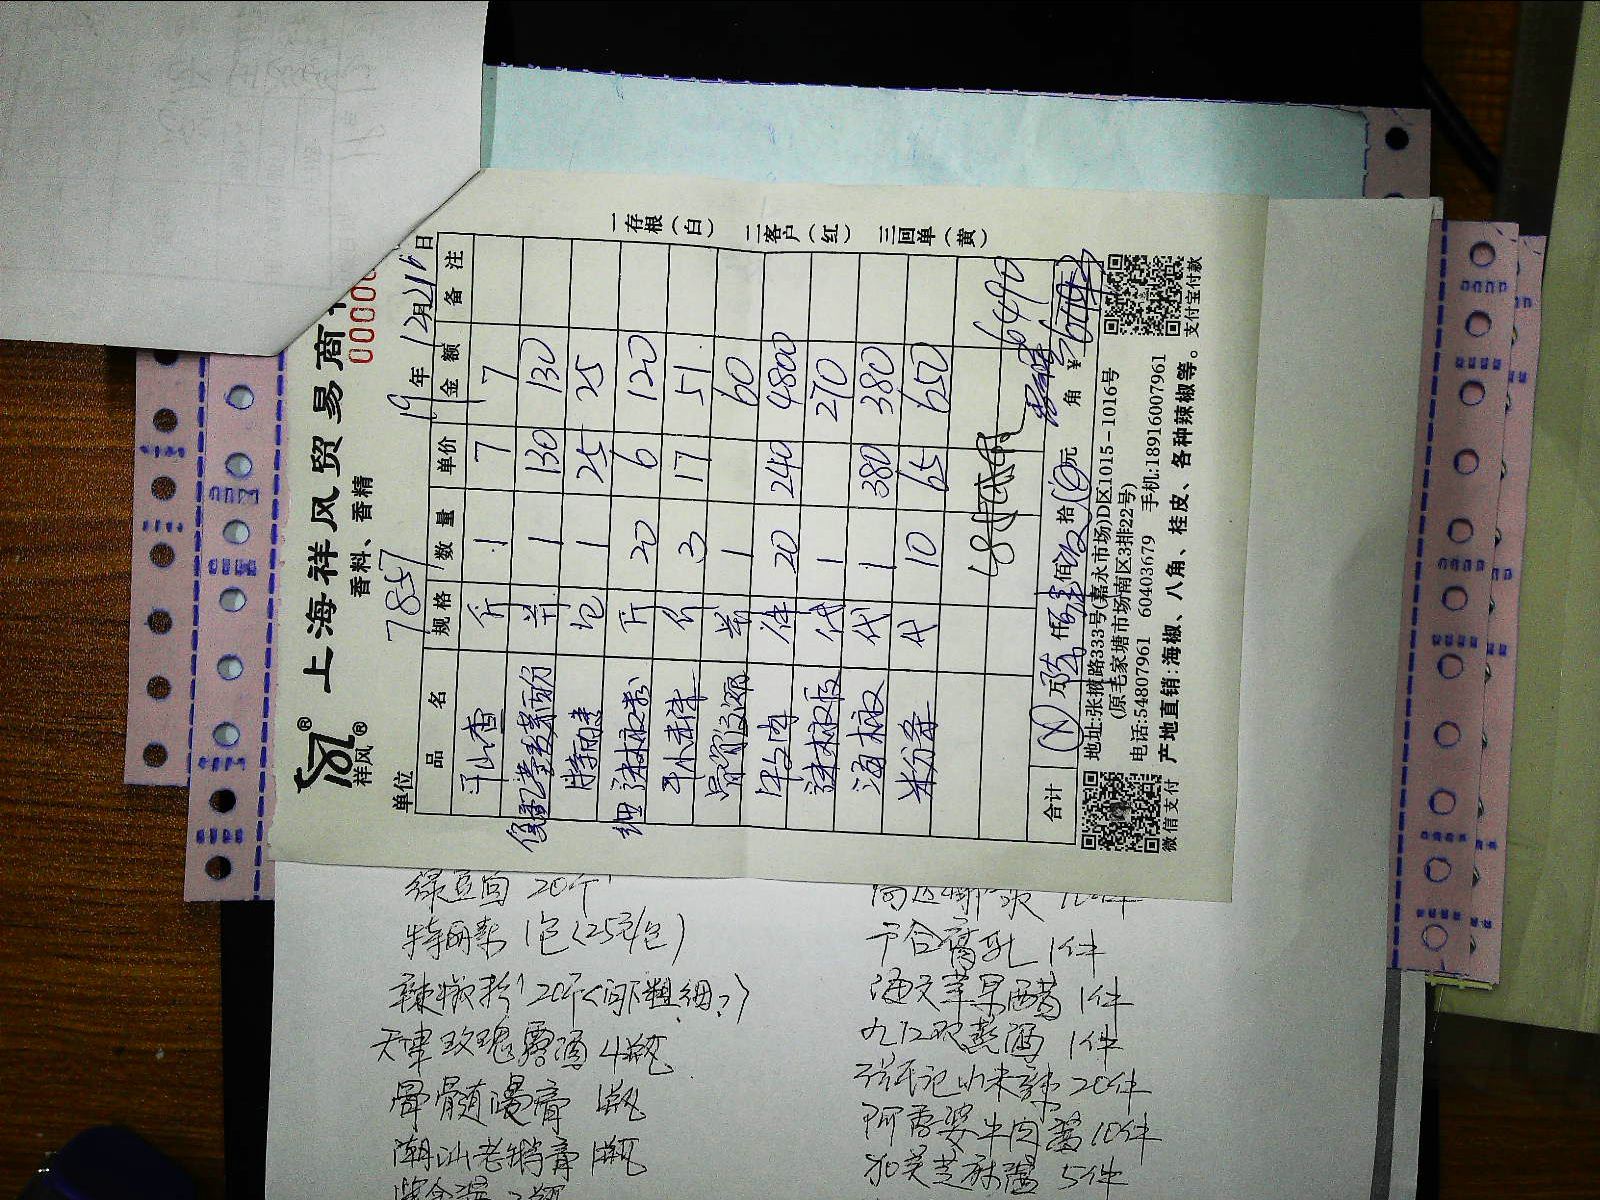 上海祥风贸易商
香料、香精
00000
祥风
单位
7857
19年12月21日
品 名 规格 数量 单价 金额 备注
斤 1 7 7
1 130 130
特丽素 包 1 25 25
细辣椒粉 斤 20 6 120
斤 3 17 51
骨髓浸膏 1 60
件 20 240 4800
辣椒段 代 1 270
海椒 代 1 380 380
米粉条 代 10 65 650
6490
合计 万 仟 佰 拾 元 角 ¥
一存根(白) 二客户(红) 三回单(黄)
地址:张掖路333号(嘉永市场)D区1015-1016号
(原毛家塘市场南区3排22号)
电话:54807961 60403679 手机:18916007961
产地直销:海椒、八角、桂皮、各种辣椒等。
微信支付
支付宝付款
绿豆面 20斤
特丽素 1包(25元/包)
辣椒粉 20斤(问下粗细?)
天津玫瑰露酒 4瓶
骨髓浸膏 1瓶
潮汕老鹅膏 1瓶
10件
腐乳 1件
苹果醋 1件
九江双蒸酒 1件
小米辣 20件
阿香婆牛肉酱 10件
5件